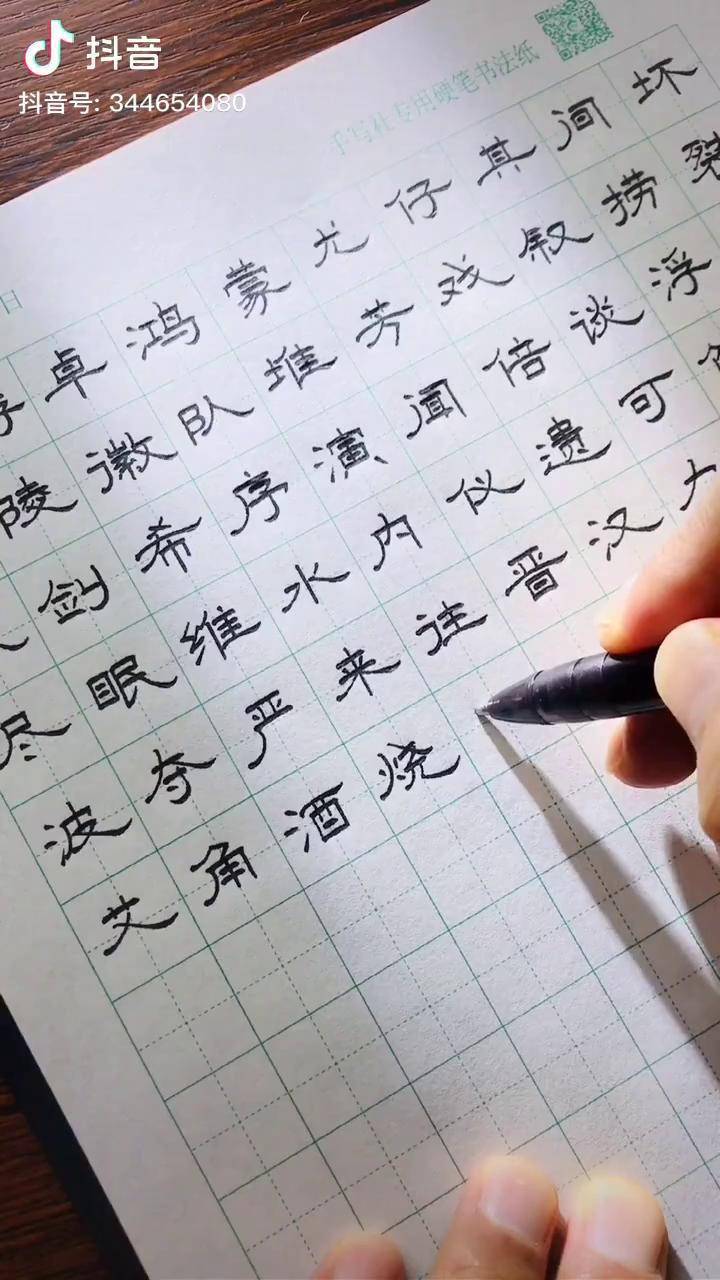 抖音
抖音号: 344654080
手写社专用硬笔书法纸
日
卓鸿蒙尤仔其间坏
陵徽队堆芳戏叙捞
剑希序演闻倍谈浮
尽眠维水内仪遗可
波夺严来往晋汉
艾角酒烧